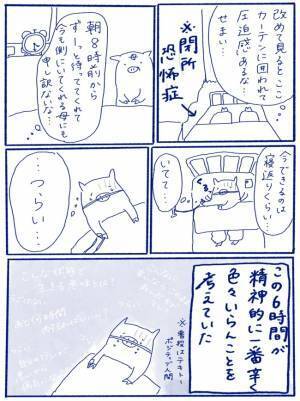 改めて見るとここ
カーテンに囲われて
圧迫感あるな…
せまい…
※閉所
恐怖症
母
朝8時前から
ずーっと待っててくれて
今も側にいてくれる母にも
申し訳ないな…
今できるのは
寝返りくらい…
いてて…
…
つらい…
この6時間が
精神的に一番辛く
色々いらんことを
考えていた
※普段はテキトー
ポジティブ人間